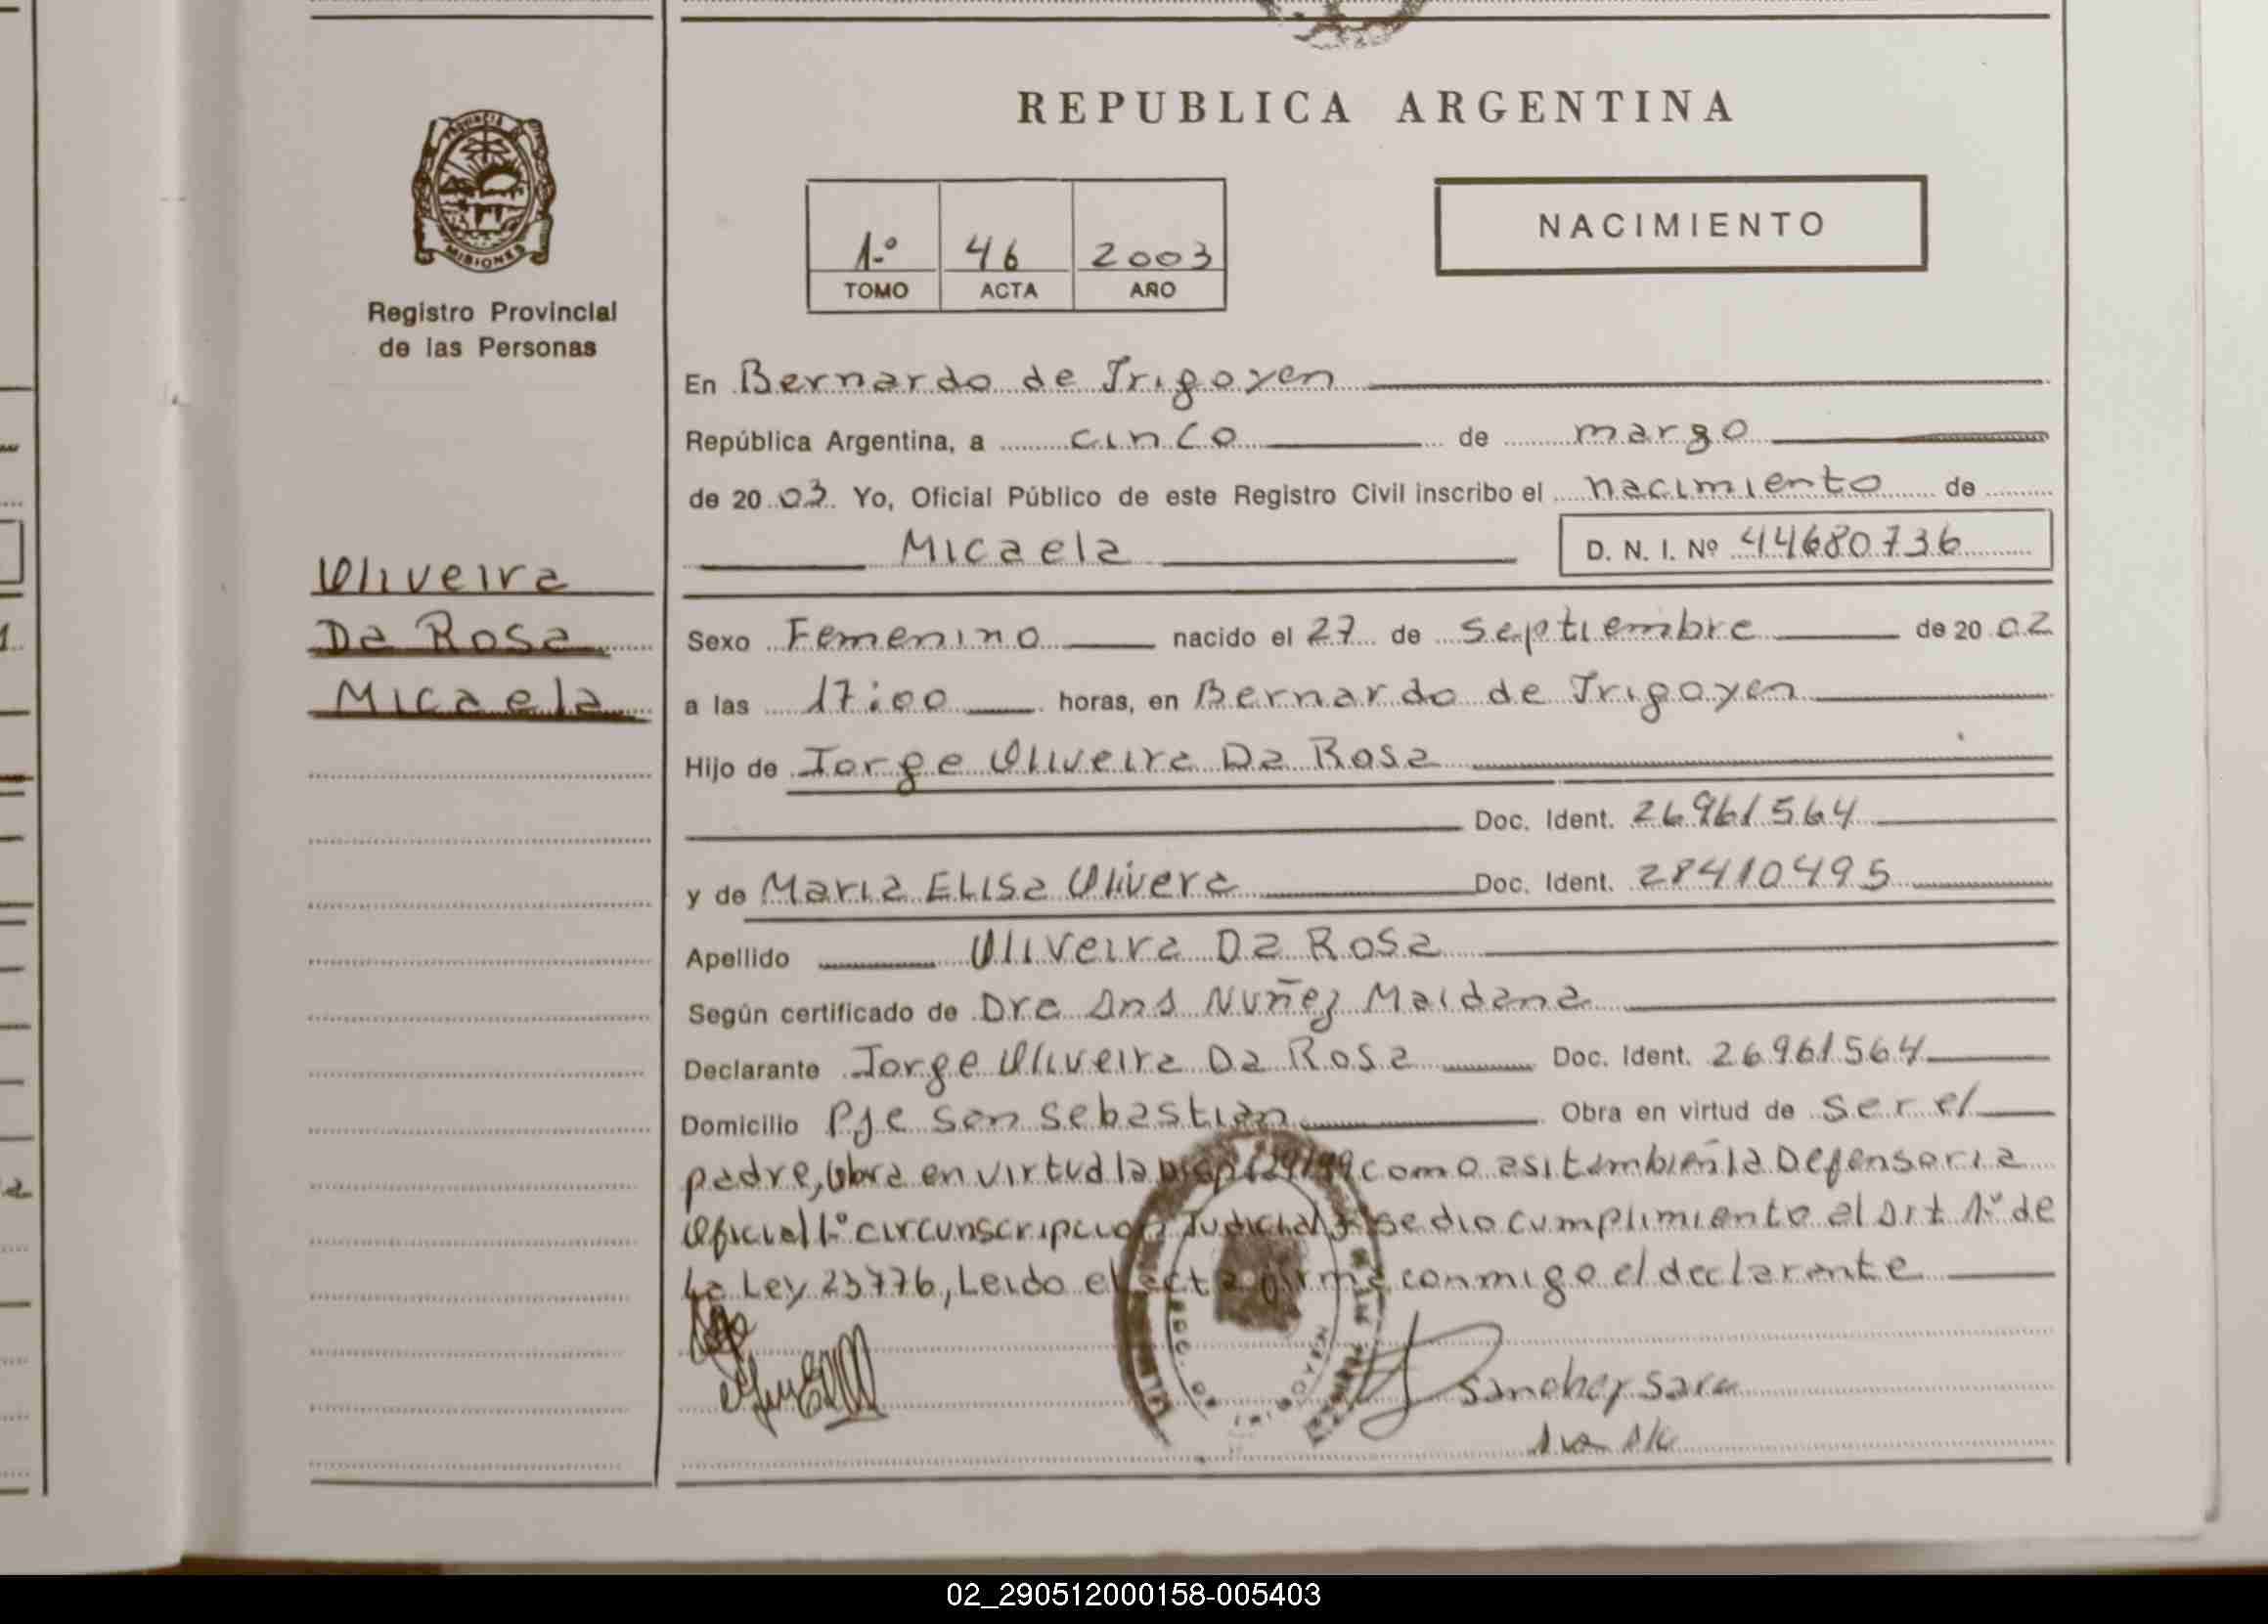 REPUBLICA ARGENTINA
PROVINCIA D MISIONES
Registro Provincial
de las Personas
1º 46 2003
TOMO ACTA AÑO
NACIMIENTO
En Bernardo de Irigoyen
República Argentina, a cinco de marzo
de 20 03. Yo, Oficial Público de este Registro Civil inscribo el nacimiento de
Micaela D. N. I. Nº 44680736
Oliveira
Da Rosa
Micaela
Sexo Femenino nacido el 27 de septiembre de 20 02
a las 17:00 horas, en Bernardo de Irigoyen
Hijo de Jorge Oliveira Da Rosa
Doc. Ident. 26961564
y de Maria Elisa Olivera Doc. Ident. 28410495
Apellido Oliveira Da Rosa
Según certificado de Dra Ana Nuñez Maidana
Declarante Jorge Oliveira Da Rosa Doc. Ident. 26961564
Domicilio Pje San Sebastian Obra en virtud de ser el
padre, Obra en virtud la Disp 129/99 como asi tambien la Defensoria
Oficial 1º circunscripcion Judicial y se dio cumplimiento al Art 1º de
La Ley 23776, Leido el acta firma conmigo el declarante
Sanchez Sara
02_290512000158-005403